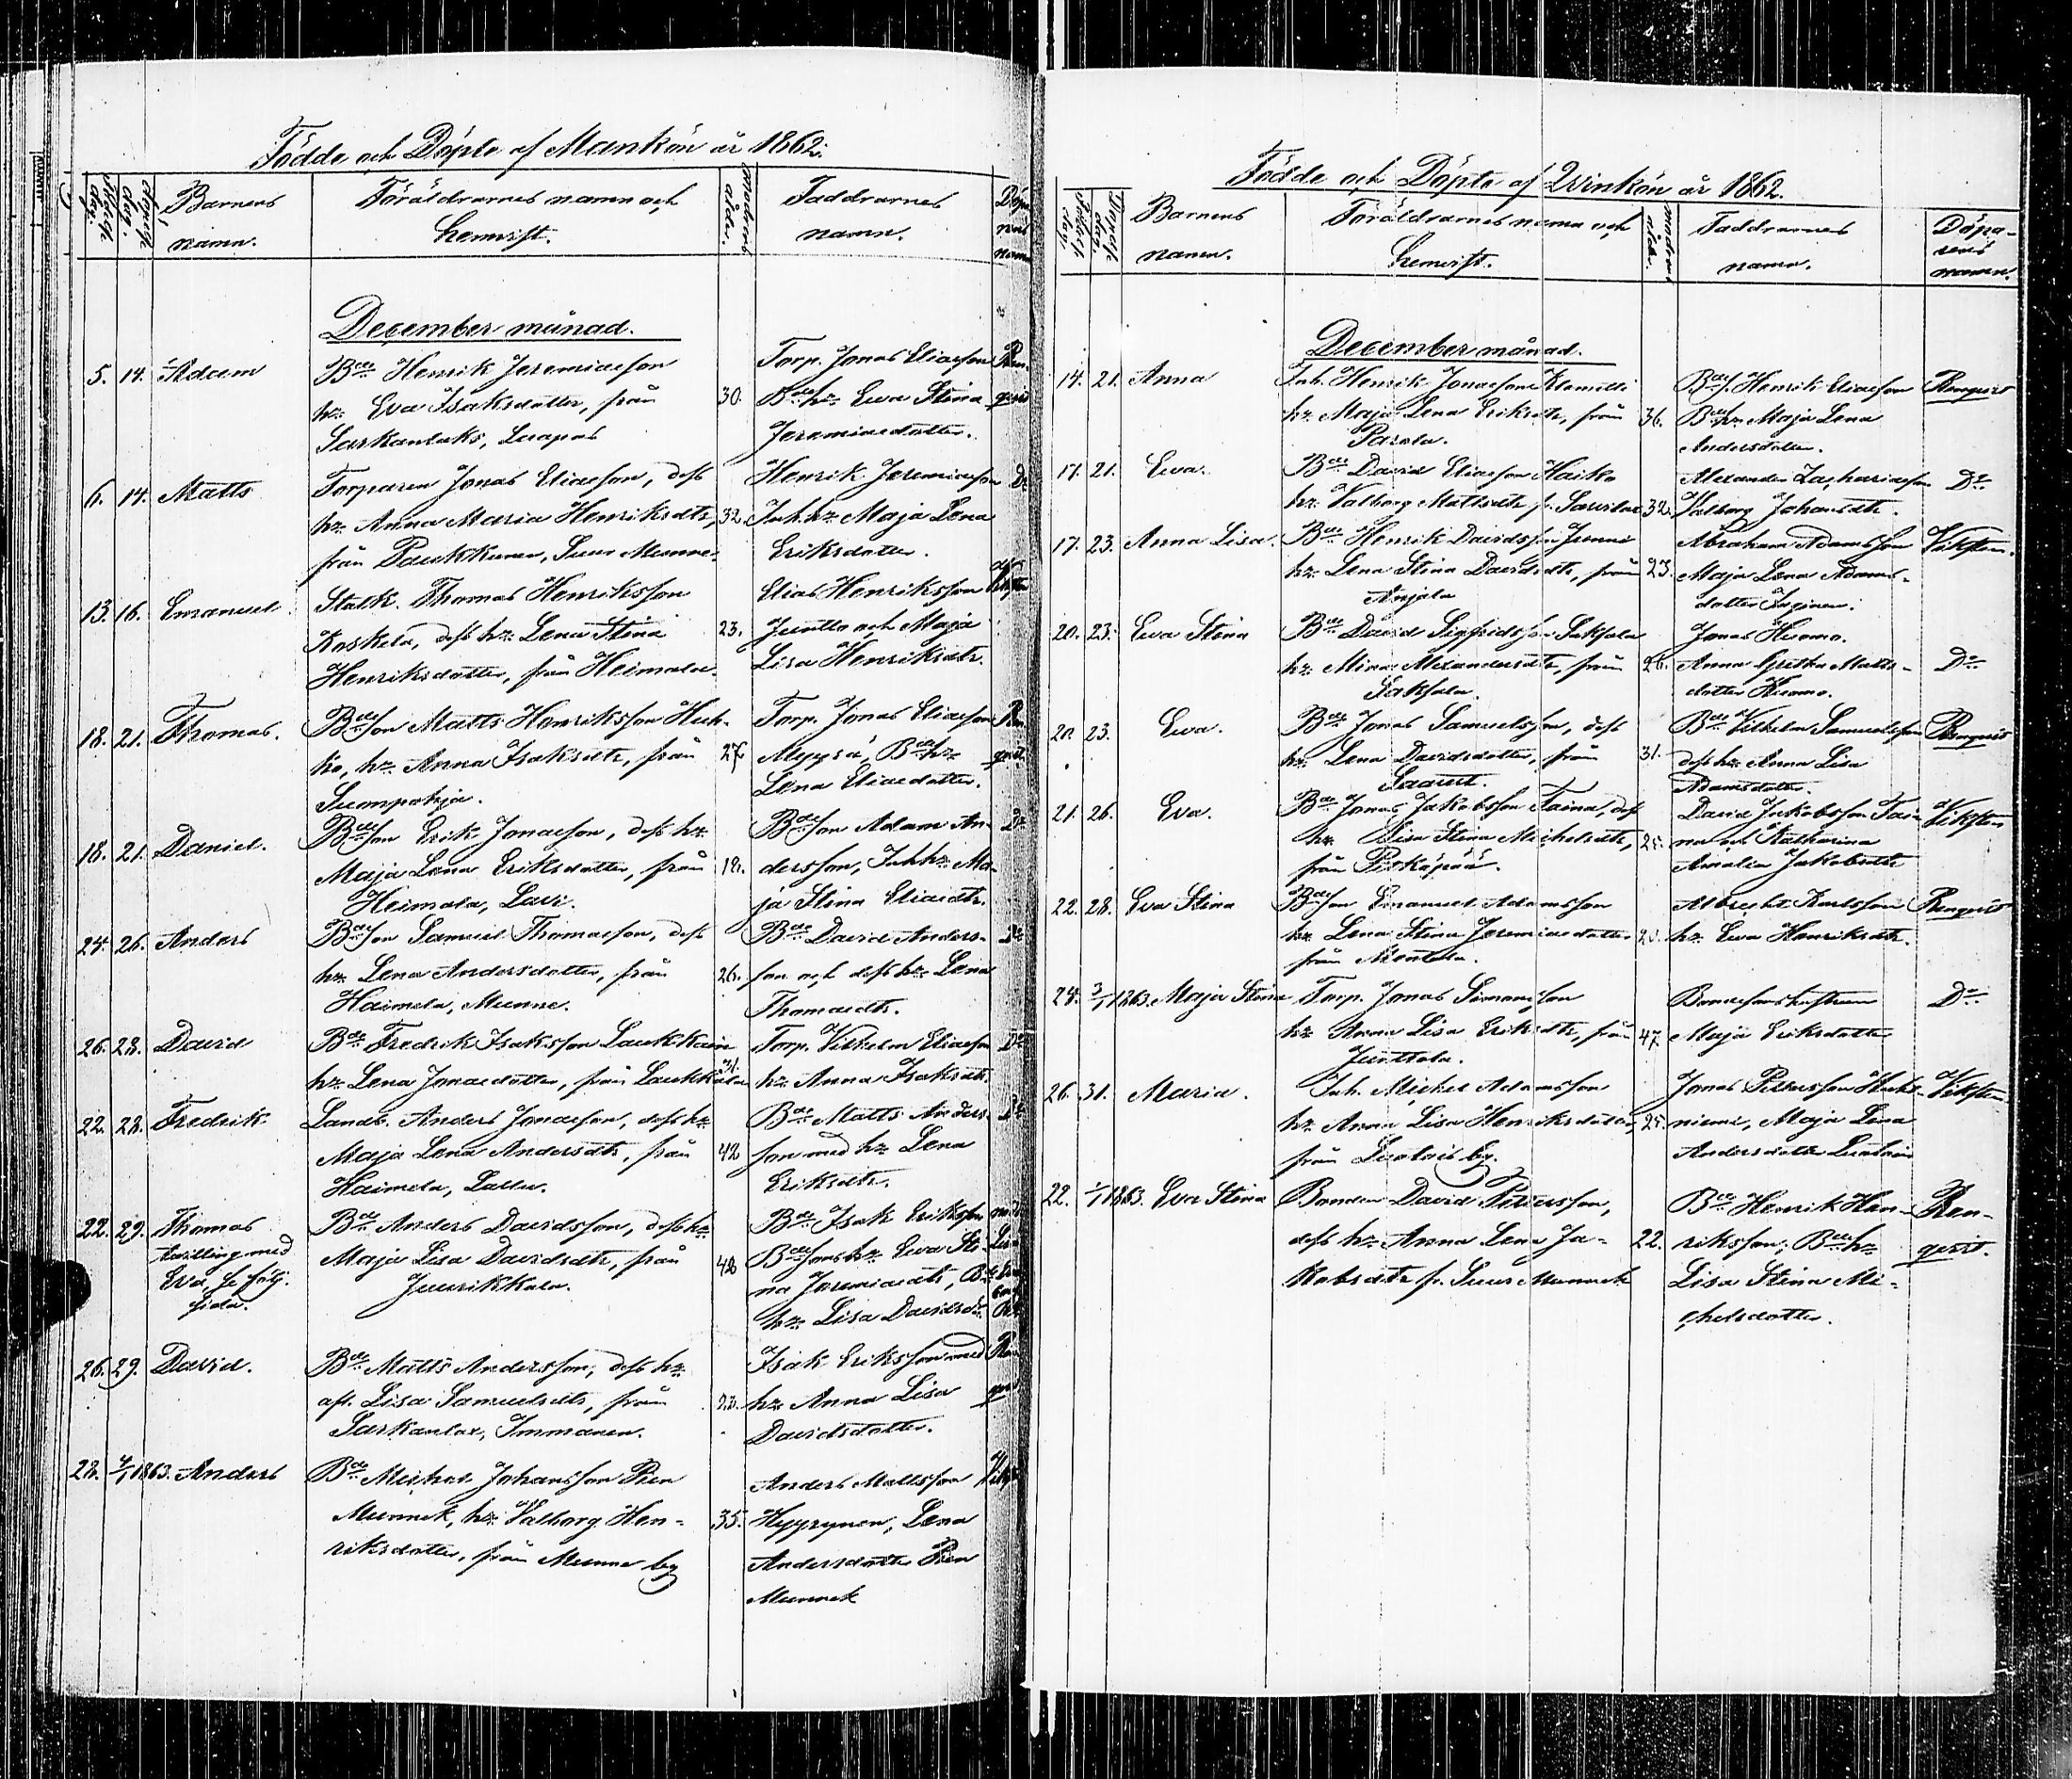 Födde och Döpte af Mankön år 1862.
Födelse dag.
Döpelse dag.
Barnens namn.
Föräldrarnes namn och hemvist.
Modrens ålder.
Faddrarnes namn.
December månad.
5. 14. Adam
Bde Henrik Jeremiaesson
hu Eva Isaksdotter, från 30.
Sarkanlaks, Luapas
Torp. Jonas Eliaesson
Bde hu Ewa Stina
Jeremiaedotter.
6. 14. Matts
Torparen Jonas Eliaesson, dess
hu Anna Maria Henriksdtr, 32.
från Paukkunen, Suur Munne
Henrik Jeremiaesson
Inh. hu Maja Lena
Eriksdotter.
13. 16. Emanuel
Statk. Thomas Henriksson
Koskela, dess hu Lena Stina 23.
Henriksdotter, från Heimala.
Elias Henriksson
Juntto och Maja
Lisa Henriksdtr.
18. 21. Thomas.
Bdeson Matts Henriksson Huk-
ko, hu Anna Isaksdtr, från 27
Suonpohja.
Torp. Jonas Eliaesson
Myyrä, Bde hu
Lena Eliaedotter.
18. 21. Daniel.
Bdeson Erik Jonaesson, dess hu
Maja Lena Eriksdotter, från
Heimala, Lari.
Bdeson Adam An-
dersson, Inh. hu Ma-
ja Stina Eliaedtr.
24. 26. Anders
Bdeson Samuel Thomaesson, dess
hu Lena Andersdotter, från 26.
Haimela, Munne.
Bde David Anders-
son och dess hu Lena
Thomaedtr.
26. 28. David
Bde Fredrik Isaksson Laukkain
hu Lena Jonaedotter, från Laukkala 31.
Torp. Vilhelm Eliaesson
hu Anna Isaksdtr.
22. 28. Fredrik
Landb. Anders Jonaesson, dess hu
Maja Lena Andersdtr, från 42
Haimela, Lalla.
Bde Matts Anders-
son med hu Lena
Eriksdtr.
22. 29. Thomas
tvilling med
Eva, se följ.
sida.
Bde Anders Davidsson, dess hu
Maja Lisa Davidsdtr, från 42
Juurikkala.
Bde Isak Eriksson
Bdesons hu Ewa Sti-
na Jeremiaedtr, Bde
hu Lisa Davidsdtr
26. 29. David.
Bde Matts Andersson, dess hu
afl. Lisa Samuelsdtr, från
Sarkanlax, Immanen.
Isak Eriksson med
hu Anna Lisa
Davidsdotter.
28. 4/1 1863. Anders
Bde Michel Johansson Pien
Munnek, hu Valborg Hen- 35.
riksdotter, från Munne by
Anders Mattsson
Hyyrynen, Lena
Andersdotter Pien
Munnek
Födde och Döpte af Qvinkön år 1862.
Födelse dag.
Döpelse dag.
Barnens namn.
Föräldrarnes namn och hemvist.
Modrens ålder.
Faddrarnes namn.
Döparens namn.
December månad.
14. 21. Anna
Inh. Henrik Jonaesson Klamilli
hu Maja Lena Eriksdtr, från 36.
Parola.
Bdes. Henrik Eliaesson Renqvist
Bde hu Maja Lena
Andersdotter.
17. 21. Ewa.
Bde David Eliaesson Haiko
hu Valborg Mattsdtr fr. 32.
Alexander Zachariaesson Do
Valborg Johansdtr.
17. 23. Anna Lisa.
Bde Henrik Davidsson Junni
hu Lena Stina Davidsdtr, från 23.
Anjala
Abraham Adamsson Vikstén.
Maja Lena Adams-
dotter Inginen.
20. 23. Ewa Stina
Bde David Sigfridsson Saksala
hu Mina Alexandersdtr, från 26.
Saksala.
Jonas Huomo.
Anna Gretha Matts- Do
dotter Huomo.
20. 23. Ewa.
Bde Jonas Samuelsson, dess
hu Lena Davidsdotter, från 31.
Bde Vilhelm Samuelsson Renqvist
dess hu Anna Lisa
Adamsdotter.
21. 26. Eva.
Bde Jonas Jakobsson Taina, dess
hu Lisa Stina Michelsdtr, 25.
från Pitkäpää.
David Jakobsson Tai- Vikstén
na och Katharina
Amalia Jakobsdtr
22. 28. Eva Stina
Bdeson Emanuel Adamsson
hu Lena Stina Jeremiaedotter
från Mentula.
Albrecht Karlsson Renqvist
hu Ewa Henriksdtr.
24. 3/1 1863. Maja Stina
Torp. Jonas Simonsson
hu Anna Lisa Eriksdtr, från 47.
Junttola.
Bondesonshustrun Do
Maja Eriksdotter
26. 31. Maria.
Inh. Michel Adamsson
hu Anna Lisa Henriksdotter, 25.
från Luotais by.
Jonas Pettersson Vikstén
niemi, Maja Lena
Andersdotter Luotain
22. 1/1 1863. Eva Stina
Bonden David Pettersson,
dess hu Anna Lena Ja- 22.
kobsdtr fr. Suur Munnek
Bde Henrik Hen- Ren-
riksson, Bde hu qvist.
Lisa Stina Mi-
chelsdotter.